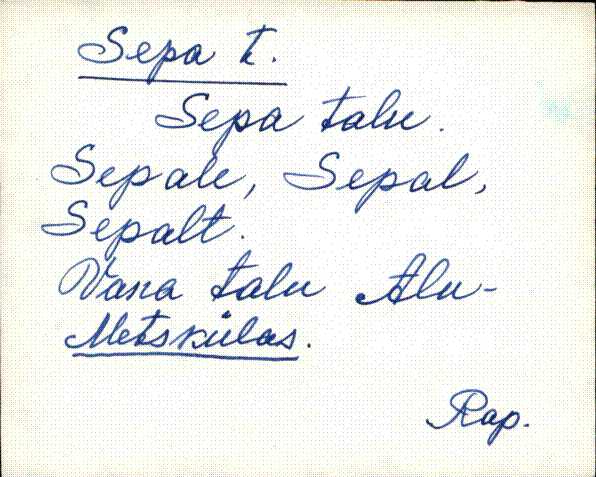 Sepa t.
Sepa talu.
Sepale, Sepal,
Sepalt.
Vana talu Alu-
Metskülas.
Rap.